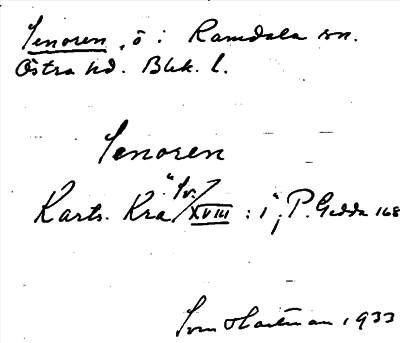 Senoren, ö i Ramdala sn.
Östra hd. Blek. l.
Senoren
Karts. Kra "Sv./XVIII : 1", P. Gedda 168
Sven Hartman 1933